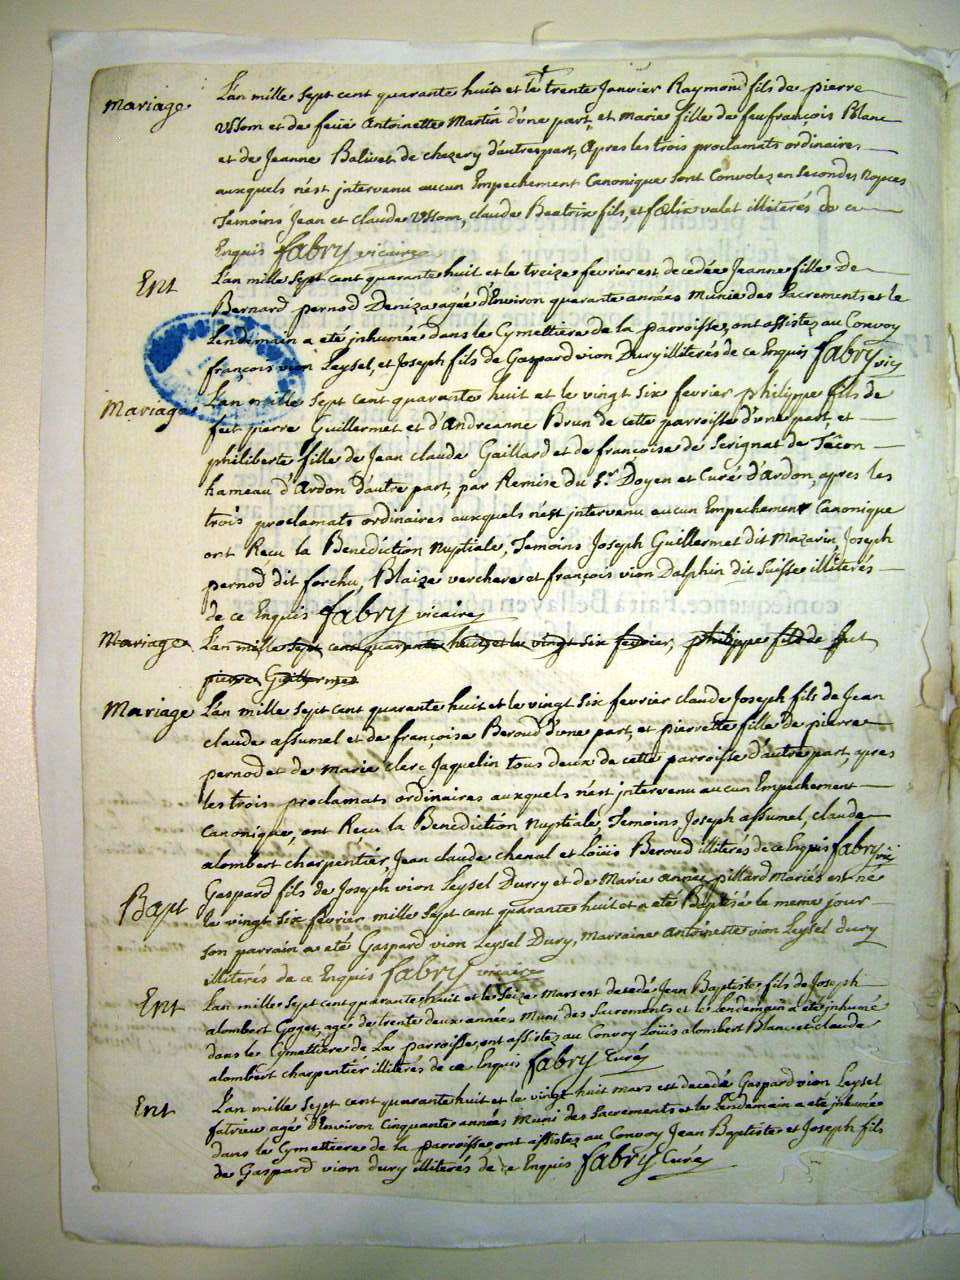 Mariage L'an mille sept cent quarante huit et le trente Janvier Raymond fils de pierre
Ussom et de feüe Antoinette Martin d'une part, et marie fille de feu françois Blanc
et de Jeanne Balivet de chezery d'autre part, Apres les trois proclamats ordinaires
auxquels n'est jntervenu aucun Empechement Canonique sont Convolez en secondes Nopces
Temoins Jean et claude Ussom, claude Beatrix fils, et fœlix valet illiterés de ce
Enquis fabry vicaire
Ent L'an mille sept cent quarante huit et le treize fevrier est decedée Jeanne fille de
Bernard pernod Deniza agée d'Environ quarante années Munie des Sacrements et le
Lendemain a eté jnhumée dans le Cymettiere de la parroisse, ont assistez au Convoy
françois vion Leysel, et Joseph fils de Gaspard vion Dury illiterés de ce Enquis fabry vic
Mariage L'an mille sept cent quarante huit et le vingt six fevrier philippe fils de
feu pierre Guillermet et d'Andreanne Brun de cette parroisse d'une part, et
philiberte fille de Jean claude Gaillard et de françoise de Serignat de Tâcon
hameau d'Ardon d'autre part, par Remise du Sr. Doyen et Curé d'Ardon, apres les
trois proclamats ordinaires auxquels n'est jntervenu aucun Empechement Canonique
ont Recu la Benediction Nuptiale, Temoins Joseph Guillermet dit Mazarin, Joseph
pernod dit forchu, Blaize verchere et françois vion Dalphin dit Suisse illiterés
de ce Enquis fabry vicaire
Mariage L'an mille sept cent quarante huit et le vingt six fevrier, philippe fils de feu
pierre Guillermet
Mariage L'an mille sept cent quarante huit et le vingt six fevrier claude Joseph fils de Jean
claude assumel et de françoise Beroud d'une part, et pierrette fille de pierre
pernod et de Marie clerc Jaquelin tous deux de cette parroisse d'autre part, apres
les trois proclamats ordinaires auxquels n'est jntervenu aucun Empechement
Canonique, ont Recu la Benediction Nuptiale, Temoins Joseph assumel, claude
alombert charpentier, Jean claude chenal et Loüis Beroud illiterés de ce Enquis fabry vic
Bapt Gaspard fils de Joseph vion Leysel Durry et de Marie année pillard mariés est né
le vingt six fevrier mille sept cent quarante huit et a eté Baptisé le meme jour
son parrain a eté Gaspard vion Leysel Dury, Marraine Antoinette vion Leysel dury
illiterés de ce Enquis fabry vicaire
Ent L'an mille sept cent quarante huit et le seize Mars est decedé Jean Baptiste fils de Joseph
alombert Goget, agé de trente deux années Muni des Sacrements et le Lendemain a eté jnhumé
dans le Cymettiere de La parroisse, ont assistez au Convoy Loüis alombert Blanc et claude
alombert charpentier illiterés de ce Enquis fabry Curé
Ent L'an mille sept cent quarante huit et le vingt huit mars est decedé Gaspard vion Leysel
fatrieu agé d'Environ Cinquante années Muni des Sacrements et le Lendemain a eté jnhumé
dans le Cymettiere de la parroisse, ont assistez au Convoy Jean Baptiste et Joseph fils
de Gaspard vion dury illiterés de ce Enquis fabry Curé